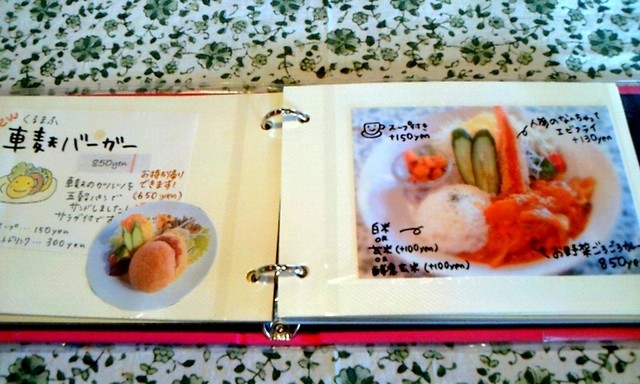 くるまふ
車麩バーガー
850yen
車麩のカツバーガーを
五穀パンで
サンドしました!
サラダ付です
お持ち帰り
できます!
(650yen)
150yen
ドリンク... 300yen
スープ付き
+150yen
人気のなんちゃって
エビフライ
+130yen
白米
OR
玄米(+100yen)
OR
酵素玄米(+100yen)
お野菜ごろごろカ
850ye